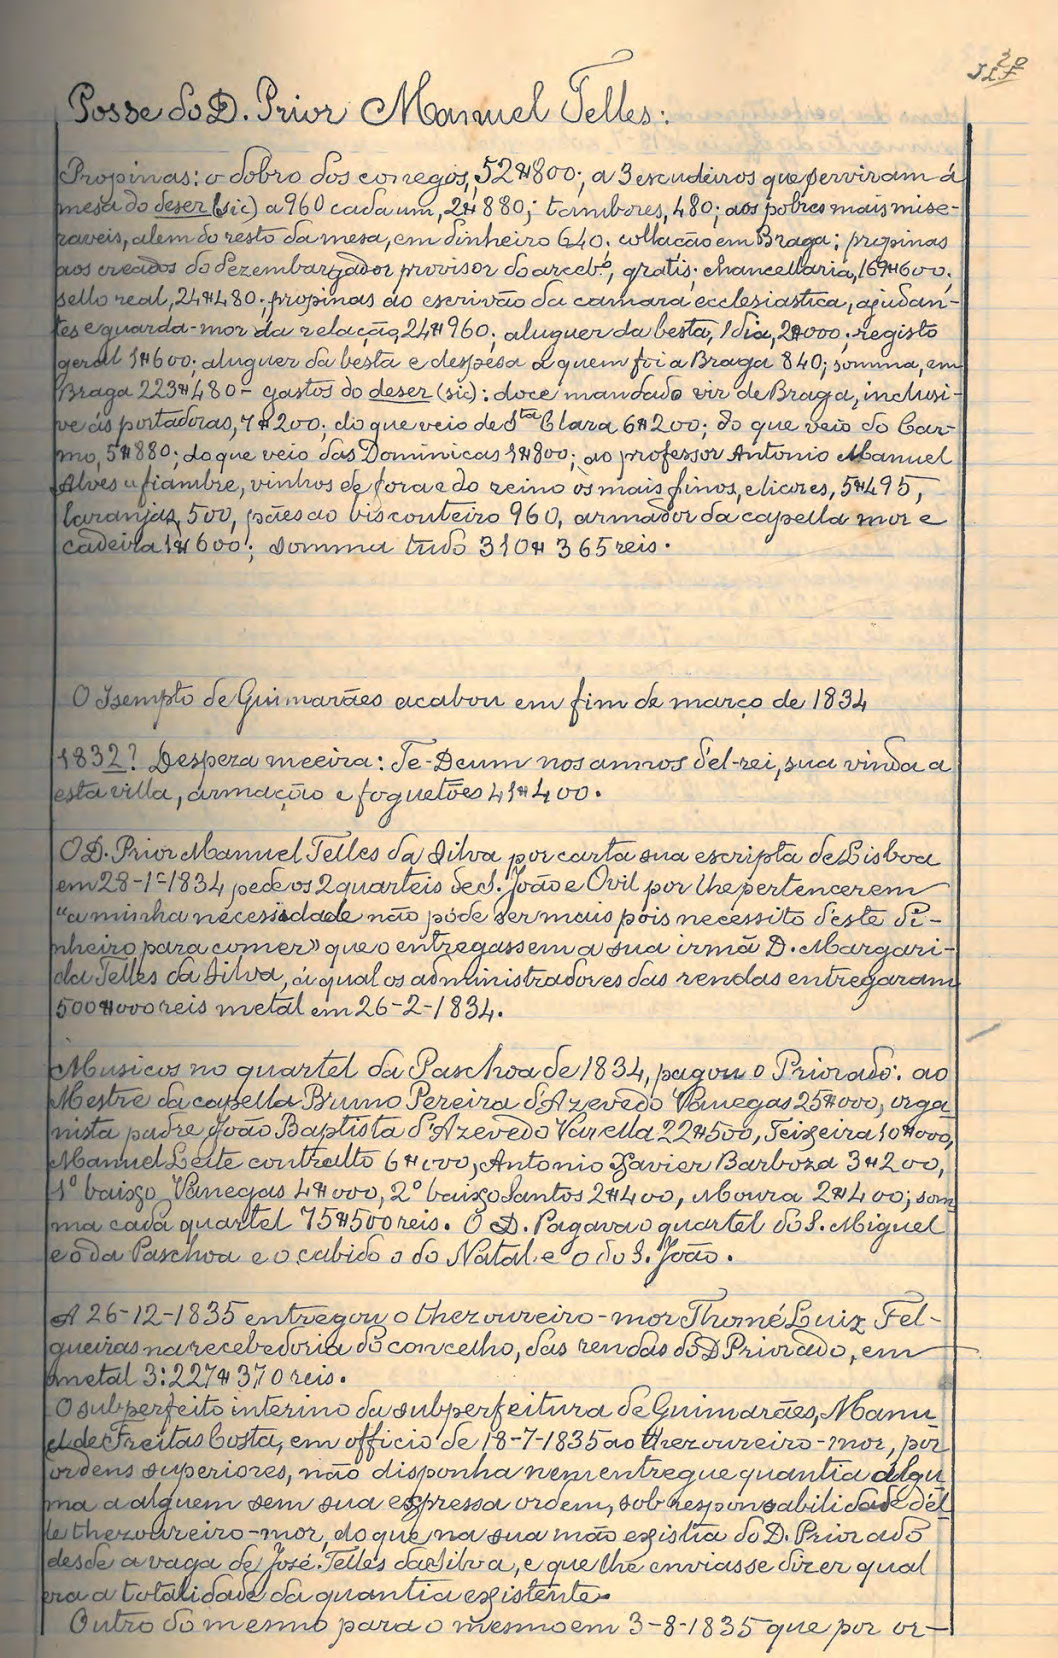 30
Posse do D. Prior Manuel Telles:
Propinas: o dobro dos conegos, 52$800; a 3 escudeiros que serviram á
mesa do deser (sic) a 960 cada um, 2$880; tambores, 480; aos pobres mais mise-
raveis, alem do resto da mesa, em dinheiro 640. collação em Braga; propinas
aos creados do dezembargador provisor do arcebº, gratis; chancellaria, 169$600.
sello real, 24$480; propinas ao escrivão da camara ecclesiastica, ajudan-
tes e guarda-mor da relação, 24$960; aluguer da besta, 1 dia, 2$000; registo
geral 1$600; aluguer da besta e despesa a quem foi a Braga 840; somma, em
Braga 223$480 - gastos do deser (sic): doce mandado vir de Braga, inclusi-
ve ás portadoras, 7$200; do que veio de Sta Clara 6$200; do que veio do Car-
mo, 5$880; do que veio das Dominicas 1$800; ao professor Antonio Manuel
Alves fiambre, vinhos de fora e do reino os mais finos, e licores, 5$495,
laranjas, 500, pães ao biscouteiro 960, armador da capella mor e
cadeira 1$600; somma tudo 310$365 reis.
O Isempto de Guimarães acabou em fim de março de 1834
1832? Despeza meeira: Te-Deum nos annos d'el-rei, sua vinda a
esta villa, armação e foguetões 41$400.
O D. Prior Manuel Telles da Silva por carta sua escripta de Lisboa
em 28-1º-1834 pede os 2 quarteis de S. João e Ovil por lhe pertencerem
"a minha necessidade não póde ser mais pois necessito d'este di-
nheiro para comer» que o entregassem a sua irmã D. Margari-
da Telles da Silva, á qual os administradores das rendas entregaram
500$000 reis metal em 26-2-1834.
Musicos no quartel da Paschoa de 1834, pagou o Priorado: ao
Mestre da capella Bruno Pereira d'Azevedo Vanegas 25$000, orga-
nista padre João Baptista d'Azevedo Varella 22$500, Teixeira 10$000,
Manuel Leite contralto 6$000, Antonio Xavier Barboza 3$200,
1º baixo Vanegas 4$000, 2º baixo Santos 2$400, Moura 2$400; som-
ma cada quartel 75$500 reis. O D. P. pagava o quartel do S. Miguel
e o da Paschoa e o cabido o do Natal e o do S. João.
A 26-12-1835 entregou o thezoureiro-mor Thomé Luiz Fel-
gueiras na recebedoria do concelho, das rendas do D Priorado, em
metal 3:227$370 reis.
O subperfeito interino da subperfeitura de Guimarães, Manu-
el de Freitas Costa, em officio de 18-7-1835 ao thezoureiro-mor, por
ordens superiores, não disponha nem entregue quantia algu-
ma a alguem sem sua expressa ordem, sob responsabilidade d'el-
le thezoureiro-mor, do que na sua mão existia do D. Priorado
desde a vaga de José Telles da Silva, e que lhe enviasse dizer qual
era a totalidade da quantia existente.
Outro do mesmo para o mesmo em 3-8-1835 que por or-